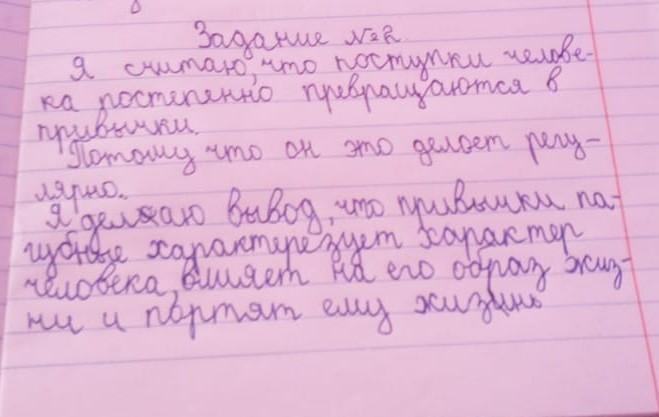 Задание №2.
Я считаю, что поступки челове-
ка постепенно превращаются в
привычки.
Потому что он это делает регу-
лярно.
Я делаю вывод, что привычки па-
губные характерезует характер
человека, влияет на его образ жиз-
ни и портят ему жизнь